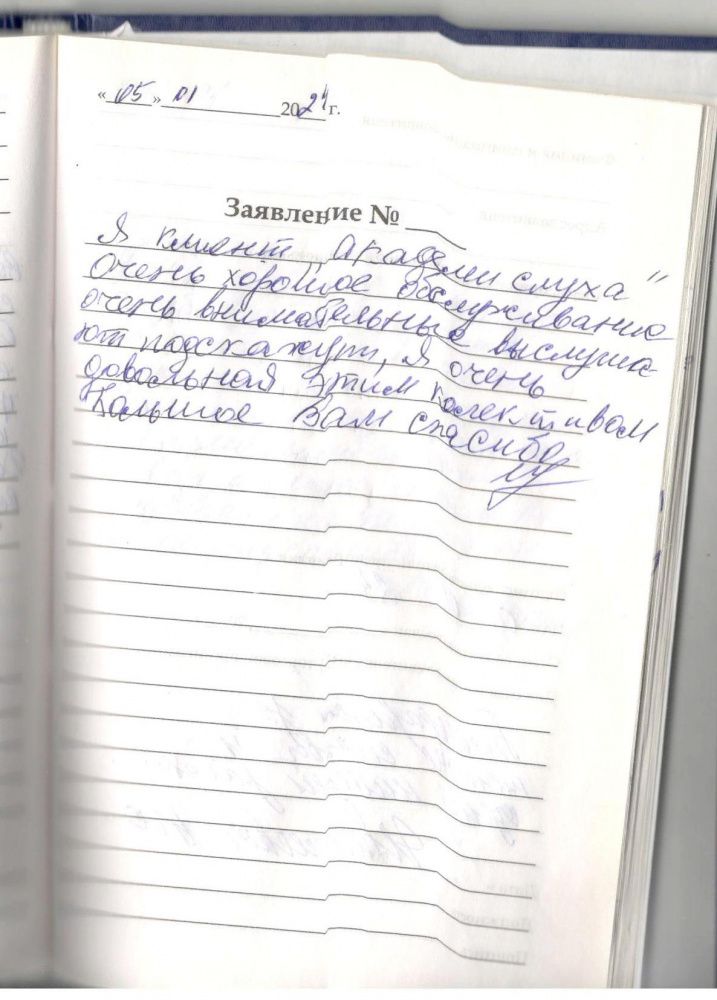 « 05 » 01 2021 г.
Заявление №
Я клиент „Академи слуха"
Очень хорошое обслуживание
очень внимательные выслуша-
ют подскажут, я очень
довольная этим колективом
Большое Вам спасибо